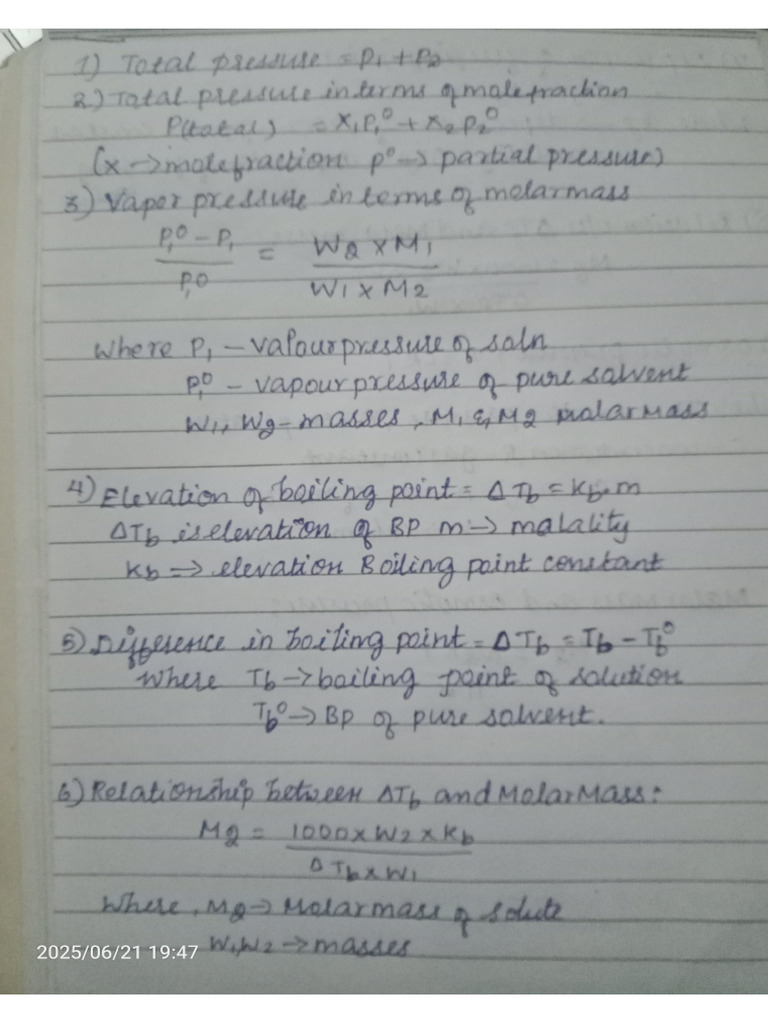 1) Total pressure = P₁ + P₂
2) Total pressure in terms of mole fraction
P(total) = x₁P₁⁰ + x₂P₂⁰
(x → mole fraction p⁰ → partial pressure)
3) Vapor pressure in terms of molar mass
P₁⁰ - P₁ / P₁⁰ = W2 × M1 / W1 × M2
Where P₁ - vapour pressure of soln
P₁⁰ - vapour pressure of pure solvent
W1, W2 - masses, M1 & M2 molar mass
4) Elevation of boiling point = ΔTb = Kb.m
ΔTb is elevation of BP m → molality
Kb ⇒ elevation Boiling point constant
5) Difference in boiling point = ΔTb = Tb - Tb⁰
Where Tb → boiling point of solution
Tb⁰ → BP of pure solvent.
6) Relationship between ΔTb and Molar Mass:
M2 = 1000 × W2 × Kb / ΔTb × W1
Where, M2 → Molar mass of solute
W1, W2 → masses
2025/06/21 19:47